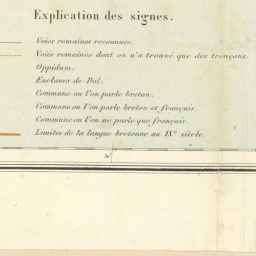 Explication des signes.
Voies romaines reconnues.
Voies romaines dont on n'a trouvé que des tronçons.
Oppidum.
Enclaves de Dol.
Commune ou l'on parle breton.
Commune ou l'on parle breton et français
Commune ou l'on ne parle que français.
Limites de la langue bretonne au IXe siècle.